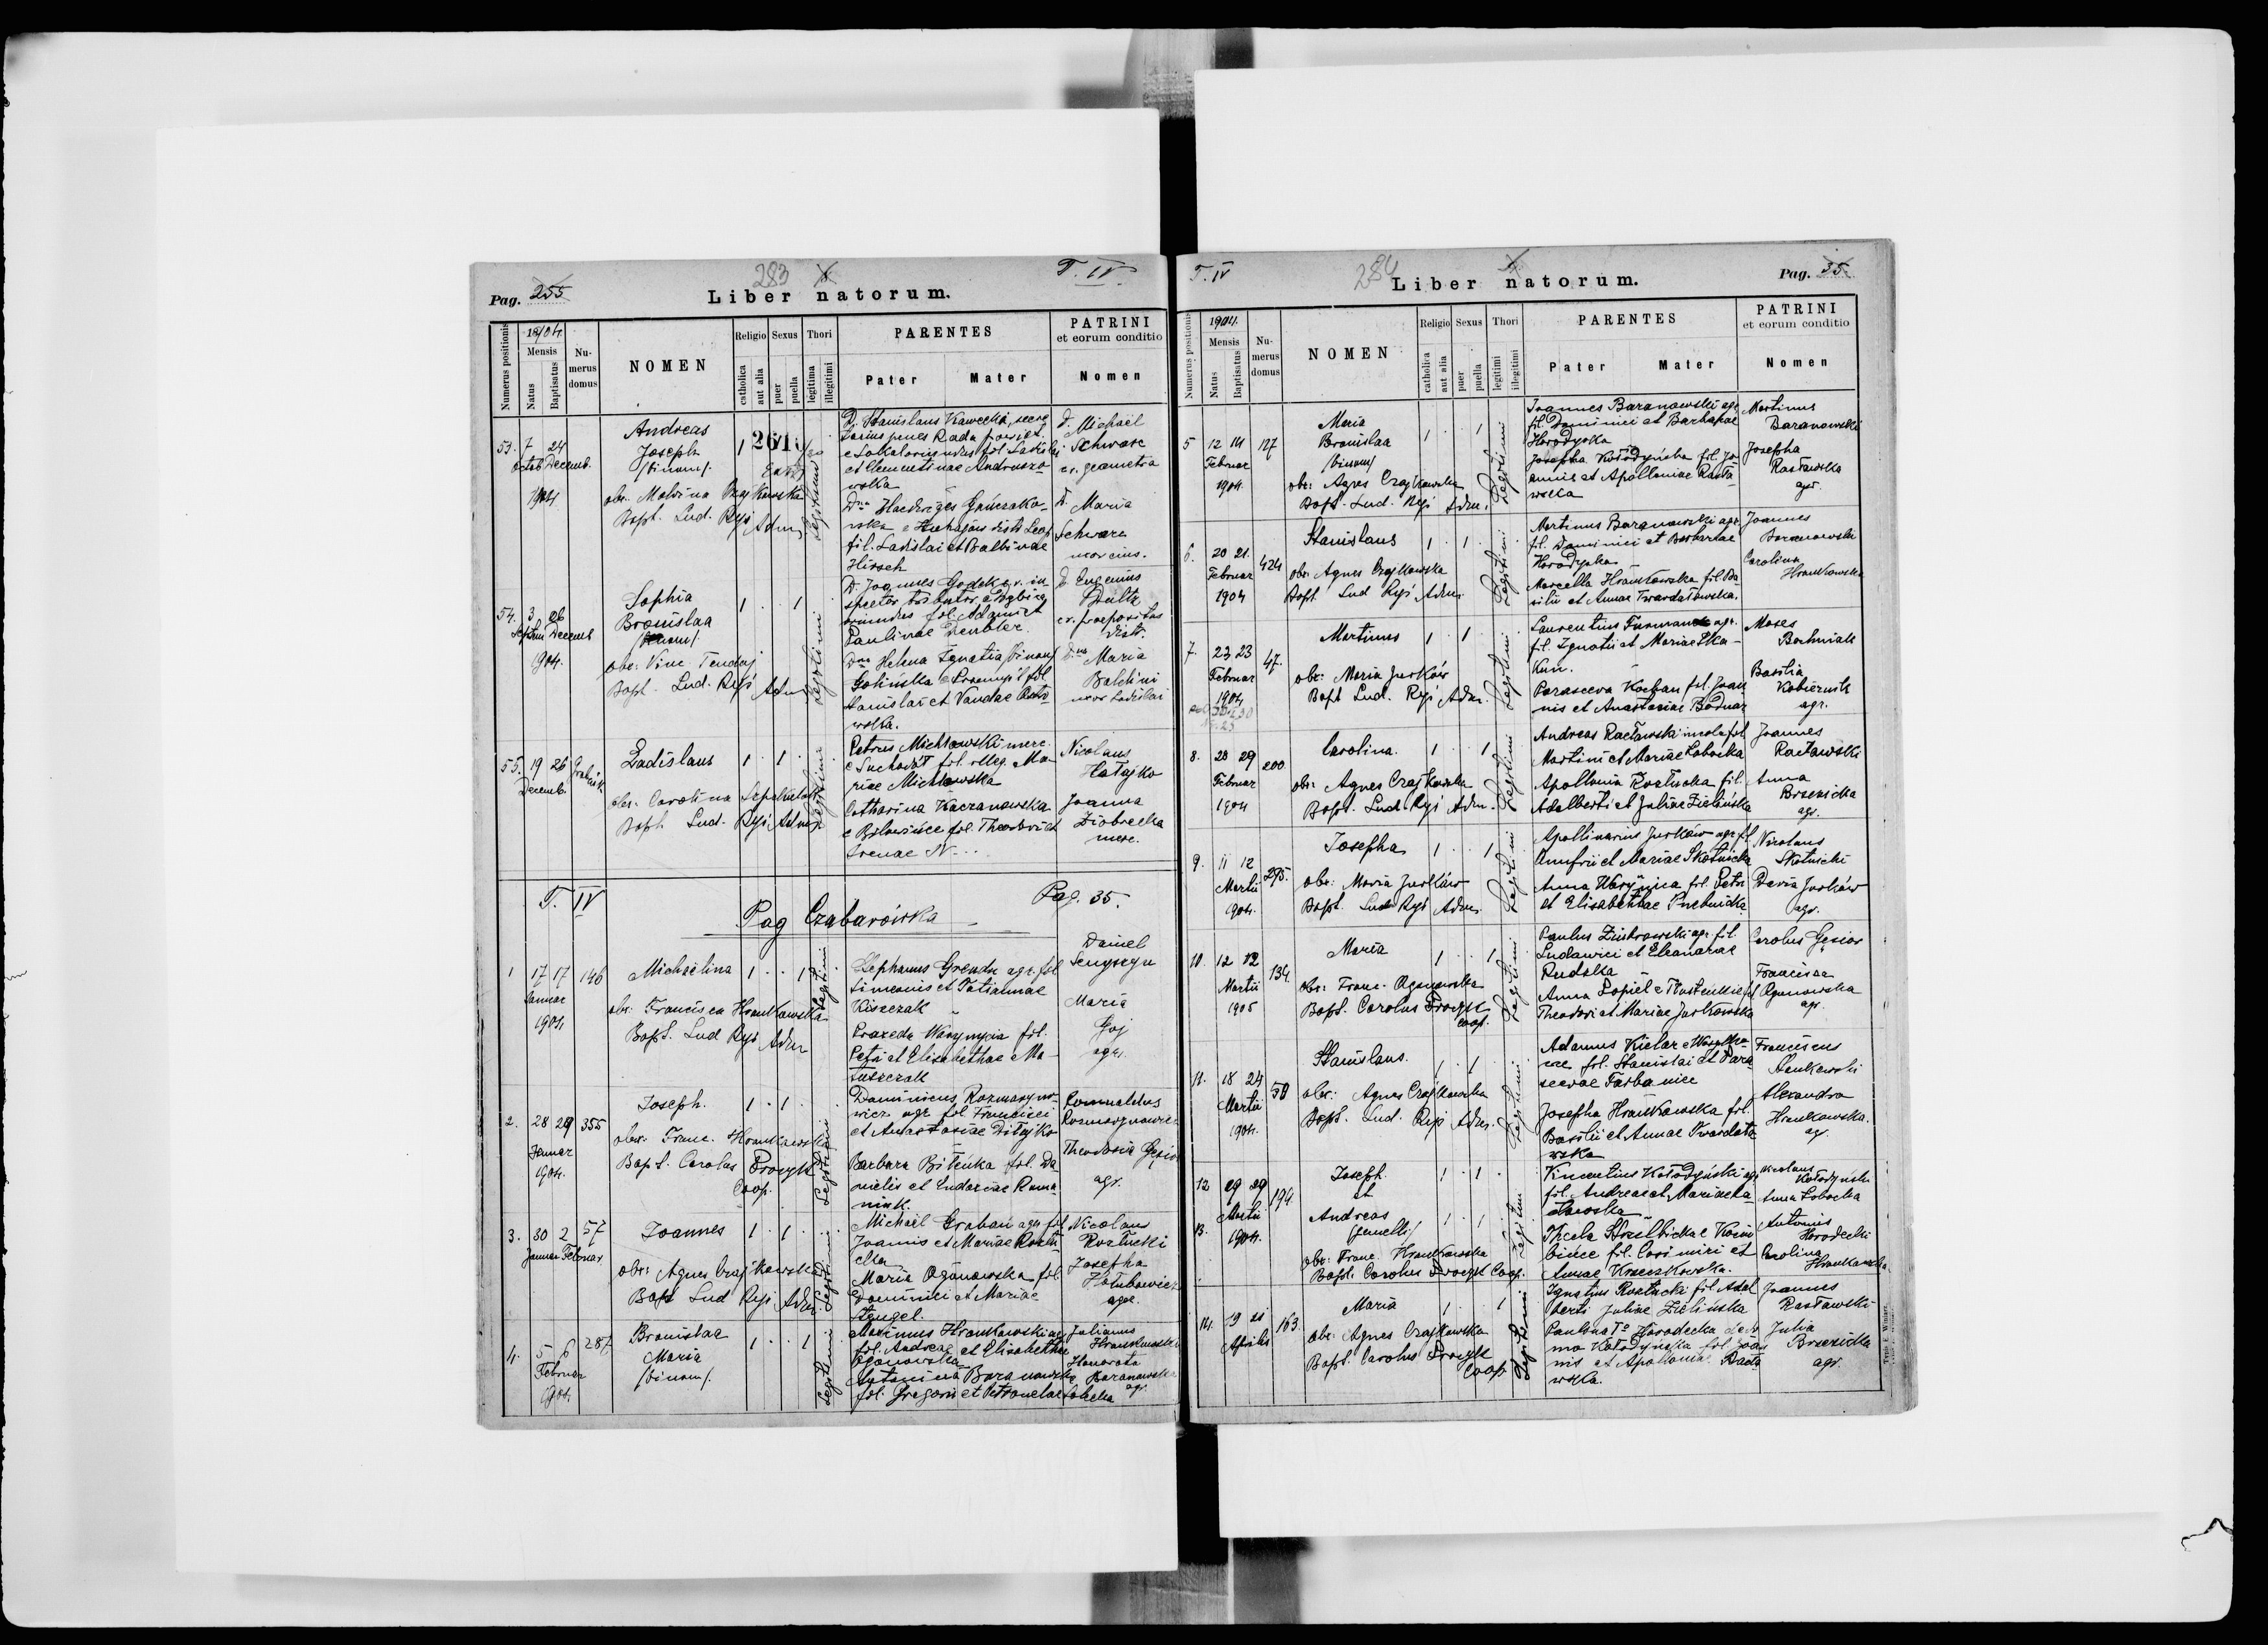 Pag. 255
283
T. IV
Liber natorum.
Numerus positionis
1904
Mensis
Natus
Baptisatus
Numerus domus
NOMEN
Religio
catholica
aut alia
Sexus
puer
puella
Thori
legitima
illegitimi
PARENTES
Pater Mater
PATRINI
et eorum conditio
Nomen
53. 7 24
Octob Decemb.
1904
Andreas
Joseph
/binom/.
obs. Malvina
Bapt. Lud. Ryś Adm
1
Legitimi
D. Stanislaus Kawecki, secre
tarius penes Rada powiat.
e Sokal oriundus fil. Ladislai
et Clementinae Andruszo-
wska
Dna Haedviges
fil. Ladislai et Balbinae
Hirsch
D. Michaël
Schwarc
c.r. geometra
D. Maria
Schwarc
uxor eius.
54. 3 26
Septem Decemb
1904.
Sophia
Bronislaa
/binom/
obs: Vinc. Tendaj
Bapt. Lud. Ryś Adm
1 1
Legitimi
D. Joannes Godek c.r. in
spector
oriundus fil. Adami et
Paulinae Deubler.
Dna Helena Ignatia /binom/
Golińska e Przemyśl fil
Stanislai et Vandae
wska.
D. Eugenius
c.r. praepositus
distr.
Dna Maria
Balchini
uxor Ladislai
55. 19 26
Decemb.
Ladislaus
obs. Carolina
Bapt Lud. Ryś Adm
1 1
Legitimi
Petrus Michłowski merc.
e Suchodół fil. illeg. Ma-
riae Michłowska
Catharina Kaczanowska
e Bilowińce fil. Theodori et
Irenae N...
Nicolaus
Hałajko
Joanna
Ziobrecka
merc.
T. IV
Pag. 35.
Pag Czabarówka
1 17 17 146
Januar
1904
Michaëlina
obs. Francisca Hrankowska
Bapt. Lud Ryś Adm
1 1
Legitimi
Stephanus Grendu agr. fil
Simeonis et Tatiannae
Kiszczak
Praxeda Warynycia fil.
Petri et Elisabethae Ma-
tuszczak
Daniel
Maria
Goj
agr.
2. 28 29 355
Januar
1904.
Joseph.
obs: Franc. Hrankowska
Bapt. Carolus Procyk
Coop.
1 1
Legitimi
Dominicus Rozmaryno-
wicz agr fil Francisci
et Anastasiae Ditajko
Barbara Bilenka fil. Da
nielis et Eudociae Roma-
niuk.
Romualdus
Rozmarynowicz
Theodosia Gęsior
agr.
3. 30 2 57
Januar Februar
Joannes
obs: Agnes Czajkowska
Bapt Lud Ryś Adm.
1 1
Legitimi
Michaël Graban agr fil
Joannis et Mariae Roztu
cka
Maria Oganowska fil.
Dominici et Mariae
Stengel.
Nicolaus
Roztucki
Josepha
Hołubowicz
agr.
4. 5 6 287
Februar
1904.
Bronislae
Maria
/binom/.
1 1
Legitimi
Maximus Hrankowski agr
fil. Andreae et Elisabethae
Oganowska
Antonina Baranowska
fil. Gregorii et Petronelae Łobocka
Julianus
Hrankowski
Honorata
Baranowska
agr.
T. IV
284
Liber natorum.
Pag. 35
Numerus positionis
1904.
Mensis
Natus
Baptisatus
Numerus domus
NOMEN
Religio
catholica
aut alia
Sexus
puer
puella
Thori
legitimi
illegitimi
PARENTES
Pater Mater
PATRINI
et eorum conditio
Nomen
5 12 14 127
Februar
1904.
Maria
Bronislaa
/binom/
obs: Agnes Czajkowska
Bapt. Lud. Ryś Adm.
1 1
Legitimi
Joannes Baranowski agr.
fil Dominici et Barbarae
Horodyska
Josepha Kołodyńska fil. Jo
annis et Apolloniae Racła
wska
Martinus
Baranowski
Josepha
Racławska
agr.
6. 20 21. 424
Februar
1904
Stanislaus
obs. Agnes Czajkowska
Bapt Lud Ryś Adm.
1 1
Legitimi
Martinus Baranowski agr.
fil. Dominici et Barbarae
Horodyska
Marcella Hrankowska fil Ba
silii et Annae Twardałowska.
Joannes
Baranowski
Carolina
Hrankowska
7. 23 23 47.
Februar
1904
Martinus
obs: Maria Jurków
Bapt Lud. Ryś Adm.
1 1
Legitimi
Laurentius Furman agr.
fil. Ignatii et Mariae Tka-
kun.
Parasceva Kochan fil. Joan
nis et Anastasiae Bodnar
Moses
Bachniak
Basilia
Kobiernik
agr.
8. 28 29 200
Februar
1904
Carolina.
obs: Agnes Czajkowska
Bapt. Lud Ryś Adm.
1 1
Legitimi
Andreas Racławski incola fil
Martini et Mariae Łobocka
Apollonia Roztucka fil.
Adalberti et Juliae Zielińska
Joannes
Racławski
Anna
Brzezicka
agr.
9. 11 12 295.
Martii
1904.
Josepha
obs: Maria Jurków
Bapt. Lud Ryś Adm.
1 1
Legitimi
Apollinarius Jurków agr. fil
Onufrii et Mariae Skotnicka
Anna Warynica fil. Petri
et Elisabethae
Nicolaus
Skotnicki
Daria Jurków
agr.
10. 12 12 134.
Martii
1905
Maria
obs: Franc. Oganowska
Bapt. Carolus Procyk
coop.
1 1
Legitimi
Paulus Ziubrowski agr. fil.
Ludovici et Eleanorae
Rudzka
Anna Popiel
Theodori et Mariae Jurkowska
Carolus Gęsior
Francisca
Oganowska
agr.
11. 18 24 50
Martii
1904.
Stanislaus.
obs: Agnes Czajkowska
Bapt. Lud. Ryś Adm.
1 1
Legitimi
Adamus Kielar
fil. Stanislai et Para
scevae
Josepha Hrankowska fil.
Basilii et Annae Twardało
wska
Franciscus
Alexandra
Hrankowska.
agr.
12 29 29 194
Martii
13. 1904.
Joseph.
et
Andreas
/gemelli/
obs: Franc. Hrankowska
Bapt. Carolus Procyk Coop.
1 1
1 1
Legitimi
Vincentius Kołodyński agr
fil. Andreae et Mariae Ra
cławska
Thecla Strzelbicka e
fil. Casimiri et
Annae Kraczkowska.
Nicolaus
Kołodyński
Anna Łobocka
Antonius
Horodecki
Carolina
Hrankowska
14. 19 21 163.
Aprilis
Maria
obs: Agnes Czajkowska
Bapt. Carolus Procyk
Coop.
1 1
Legitimi
Ignatius Roztucki fil. Adal
berti Juliae Zielińska
Paulina Horodecka
Kołodyńska fil. Joan
nis et Apolloniae Racła
wska.
Joannes
Racławski
Julia
Brzezicka
agr.